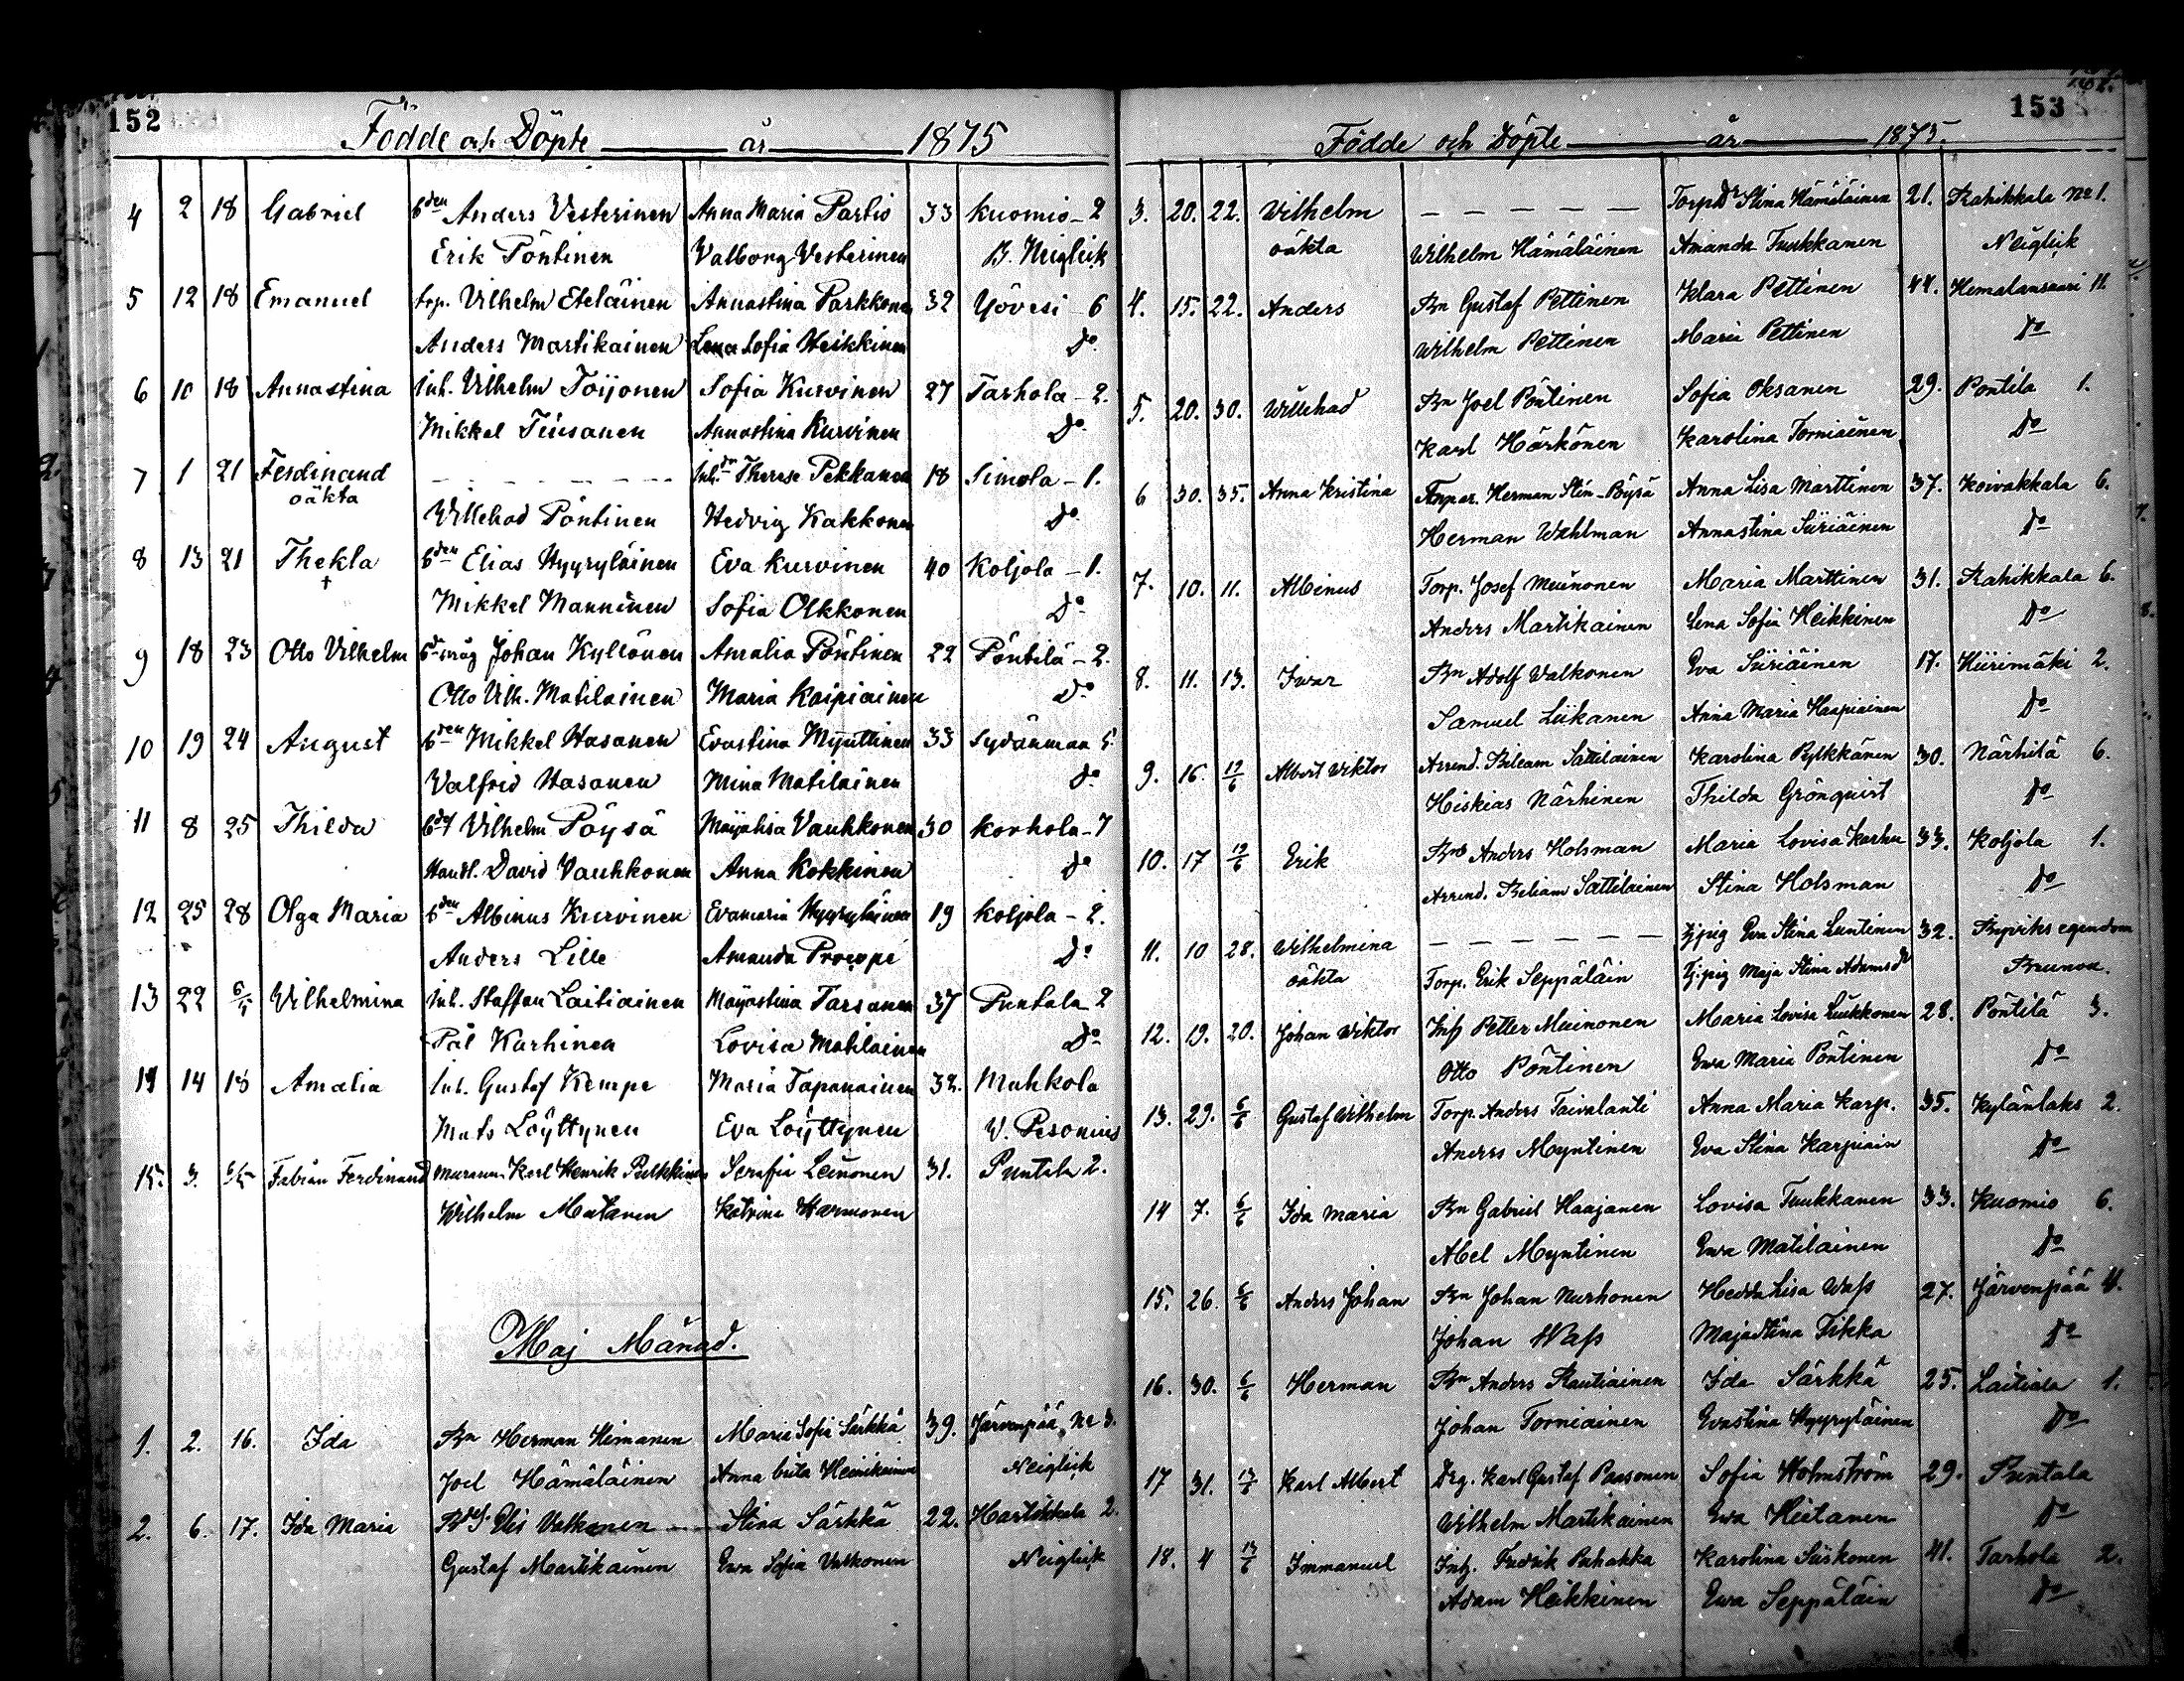 152
Födde och Döpte år 1875
4 2 18 Gabriel bden Anders Vesterinen Anna Maria Partio 33 Kuomio - 2
Erik Pöntinen Valborg Vesterinen B. Neiglick
5 12 18 Emanuel torp. Vilhelm Eteläinen Annastina Parkkonen 32 Yövesi - 6
Anders Martikainen Lena Sofia Heikkinen Do
6 10 18 Annastina inh. Vilhelm Toijonen Sofia Kurvinen 27 Tarhola - 2.
Mikkel Tiusanen Annastina Kurvinen Do
7 1 21 Ferdinand - - - - - - - inh. dr Therese Pekkanen 18 Simola - 1.
oäkta
Villehad Pöntinen Hedvig Kakkonen Do
8 13 21 Thekla bden Elias Hyyryläinen Eva Kurvinen 40 Koljola - 1.
†
Mikkel Manninen Sofia Olkkonen Do
9 18 23 Otto Vilhelm bdmåg Johan Kyllönen Amalia Pöntinen 22 Pöntilä - 2.
Otto Vilh. Matilainen Maria Kaipiainen Do
10 19 24 August bden Mikkel Hasanen Evastina Mynttinen 33 Sydänmaa 5.
Valfrid Hasanen Mina Matilainen Do
11 8 25 Thilda Vilhelm Pöysä Maijalisa Vauhkonen 30 Korhola - 7
David Vauhkonen Anna Kokkinen Do
12 25 28 Olga Maria bden Albinus Kurvinen Evamaria Hyyryläinen 19 Koljola - 2.
Anders Lille Amanda Do
13 22 Wilhelmina inh. Staffan Laitiainen Maijastina Tarsanen 37 Puntala 2
Pål Karhinen Lovisa Matilainen Do
14 14 18 Amalia inh. Gustaf Kempe Maria Tapanainen 32. Muhkola
Mats Löyttynen Eva Löyttynen V. Pesonius
15. 3. Fabian Ferdinand Karl Henrik Pulkkinen Serafia Leinonen 31. Puntala 2.
Wilhelm Matanen Katrina Harmonen
Maj Månad.
1. 2. 16. Ida Bn Herman Himanen Maria Sofia Särkkä 39. Järvenpää No 3.
Joel Hämäläinen Anna brita Heinikainen Neiglick
2. 6. 17. Ida Maria Valkonen Stina Särkkä 22. Hartikkala 2.
Gustaf Martikainen Ewa Sofia Valkonen Neiglick
153
Födde och Döpte år 1875.
3. 20. 22. Wilhelm - - - - - Torpdr Stina Hämäläinen 21. Rahikkala No 1.
oäkta Wilhelm Hämäläinen Amanda Tuukkanen Neiglick
4. 15. 22. Anders Bn Gustaf Pettinen Klara Pettinen 44. Hemalansaari 11.
Wilhelm Pettinen Maria Pettinen Do
5. 20. 30. Willehad Bn Joel Pöntinen Sofia Oksanen 29. Pöntilä 1.
Karl Härkönen Karolina Torniainen Do
6 30. 35. Anna Kristina Herman Stén-Pöysä Anna Lisa Marttinen 37. Koivakkala 6.
Herman Wahlman Annastina Siiriäinen Do
7. 10. 11. Albinus Torp. Josef Muinonen Maria Marttinen 31. Rahikkala 6.
Anders Martikainen Lena Sofia Heikkinen Do
8. 11. 13. Iwar Bn Adolf Walkonen Eva Siiriäinen 17. Hiirimäki 2.
Samuel Liikanen Anna Maria Haapiainen Do
9. 16. 12/6 Albert Viktor Arrend. Bileam Sattilainen Karolina Pylkkänen 30. Närhilä 6.
Hiskias Närhinen Thilda Grönquist Do
10. 17 12/6 Erik Anders Holsman Maria Lovisa Karhu 33. Koljola 1.
Arrend. Bileam Sattilainen Stina Holsman Do
11. 10 28. Wilhelmina - - - - - - Tjpig Eva Stina Luntinen 32. egendom
oäkta Torp. Erik Seppäläin Tjpig Maja Stina Adamsdr Brunou.
12. 19. 20. Johan Wiktor Petter Muinonen Maria Lovisa Luukkonen 28. Pöntilä 3.
Otto Pöntinen Ewa Maria Pöntinen Do
13. 29. 6/6 Gustaf Wilhelm Torp. Anders Taivalanti Anna Maria Karp. 35. Kylänlaks 2.
Anders Myntinen Eva Stina Karpiain Do
14 7. 6/6 Ida Maria Bn Gabriel Haajanen Lovisa Tuukkanen 33. Kuomio 6.
Abel Myntinen Ewa Matilainen Do
15. 26. 6/6 Anders Johan Bn Johan Nurhonen Hedda Lisa Wass 27. Järvenpää 4.
Johan Wass Majastina Tikka Do
16. 30. 6/6 Herman Bn Anders Rautiainen Ida Särkkä 25. Laitiala 1.
Johan Torniainen Evastina Hyyryläinen Do
17 31. Karl Albert Drg. Karl Gustaf Paasonen Sofia Holmström 29. Puntala
Wilhelm Martikainen Ewa Heitanen Do
18. 4 13/6 Immanuel Inh. Fredrik Puhakka Karolina Siiskonen 41. Tarhola 2.
Adam Heikkinen Ewa Seppäläin Do